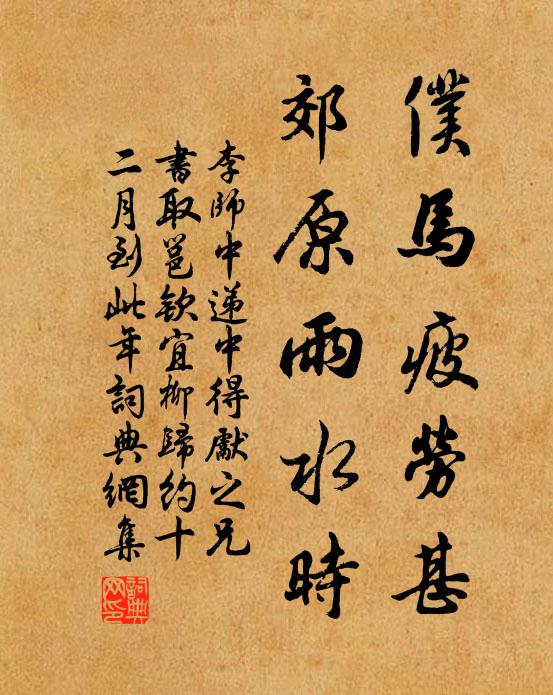 僕馬疲勞甚
郊原雨水時
李師中遞中得獻之兄
書取邕欽宜柳歸約十
二月到此年詞典網集
詞典
网印